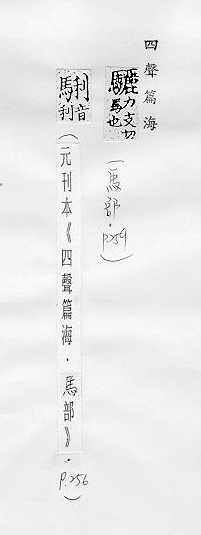 四聲篇海
力支切馬也（馬部·P.259）
音利（元刊本《四聲篇海·馬部》·P.256）